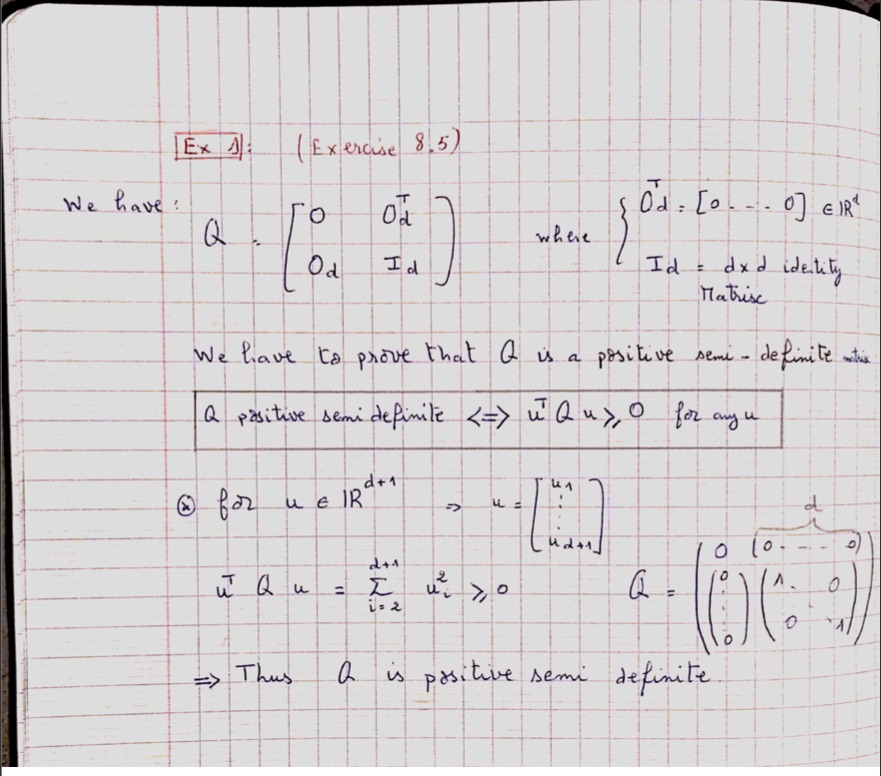 Ex 1: (Exercise 8.5)
We have: Q = [0 0_d^T ; 0_d I_d] where { 0_d^T = [0 . - - . 0] ∈ ℝ^d
I_d = d×d identity
Matrix
We have to prove that Q is a positive semi-definite matrix
Q positive semi definite <=> u^T Q u ≥ 0 for any u
⊗ for u ∈ ℝ^{d+1} => u = [u_1 ⋮ u_{d+1}]
d
u^T Q u = Σ_{i=2}^{d+1} u_i^2 ≥ 0 Q = (0 (0 - - - - 0) ; (0 ⋮ 0) (1 . 0 ; 0 . 1))
=> Thus Q is positive semi definite.